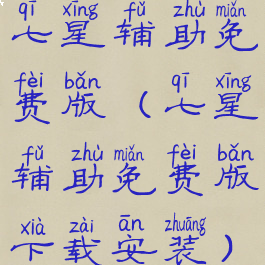 qī xīng fǔ zhù miǎn
七星辅助免
fèi bǎn qī xīng
费版（七星
fǔ zhù miǎn fèi bǎn
辅助免费版
xià zài ān zhuāng
下载安装）